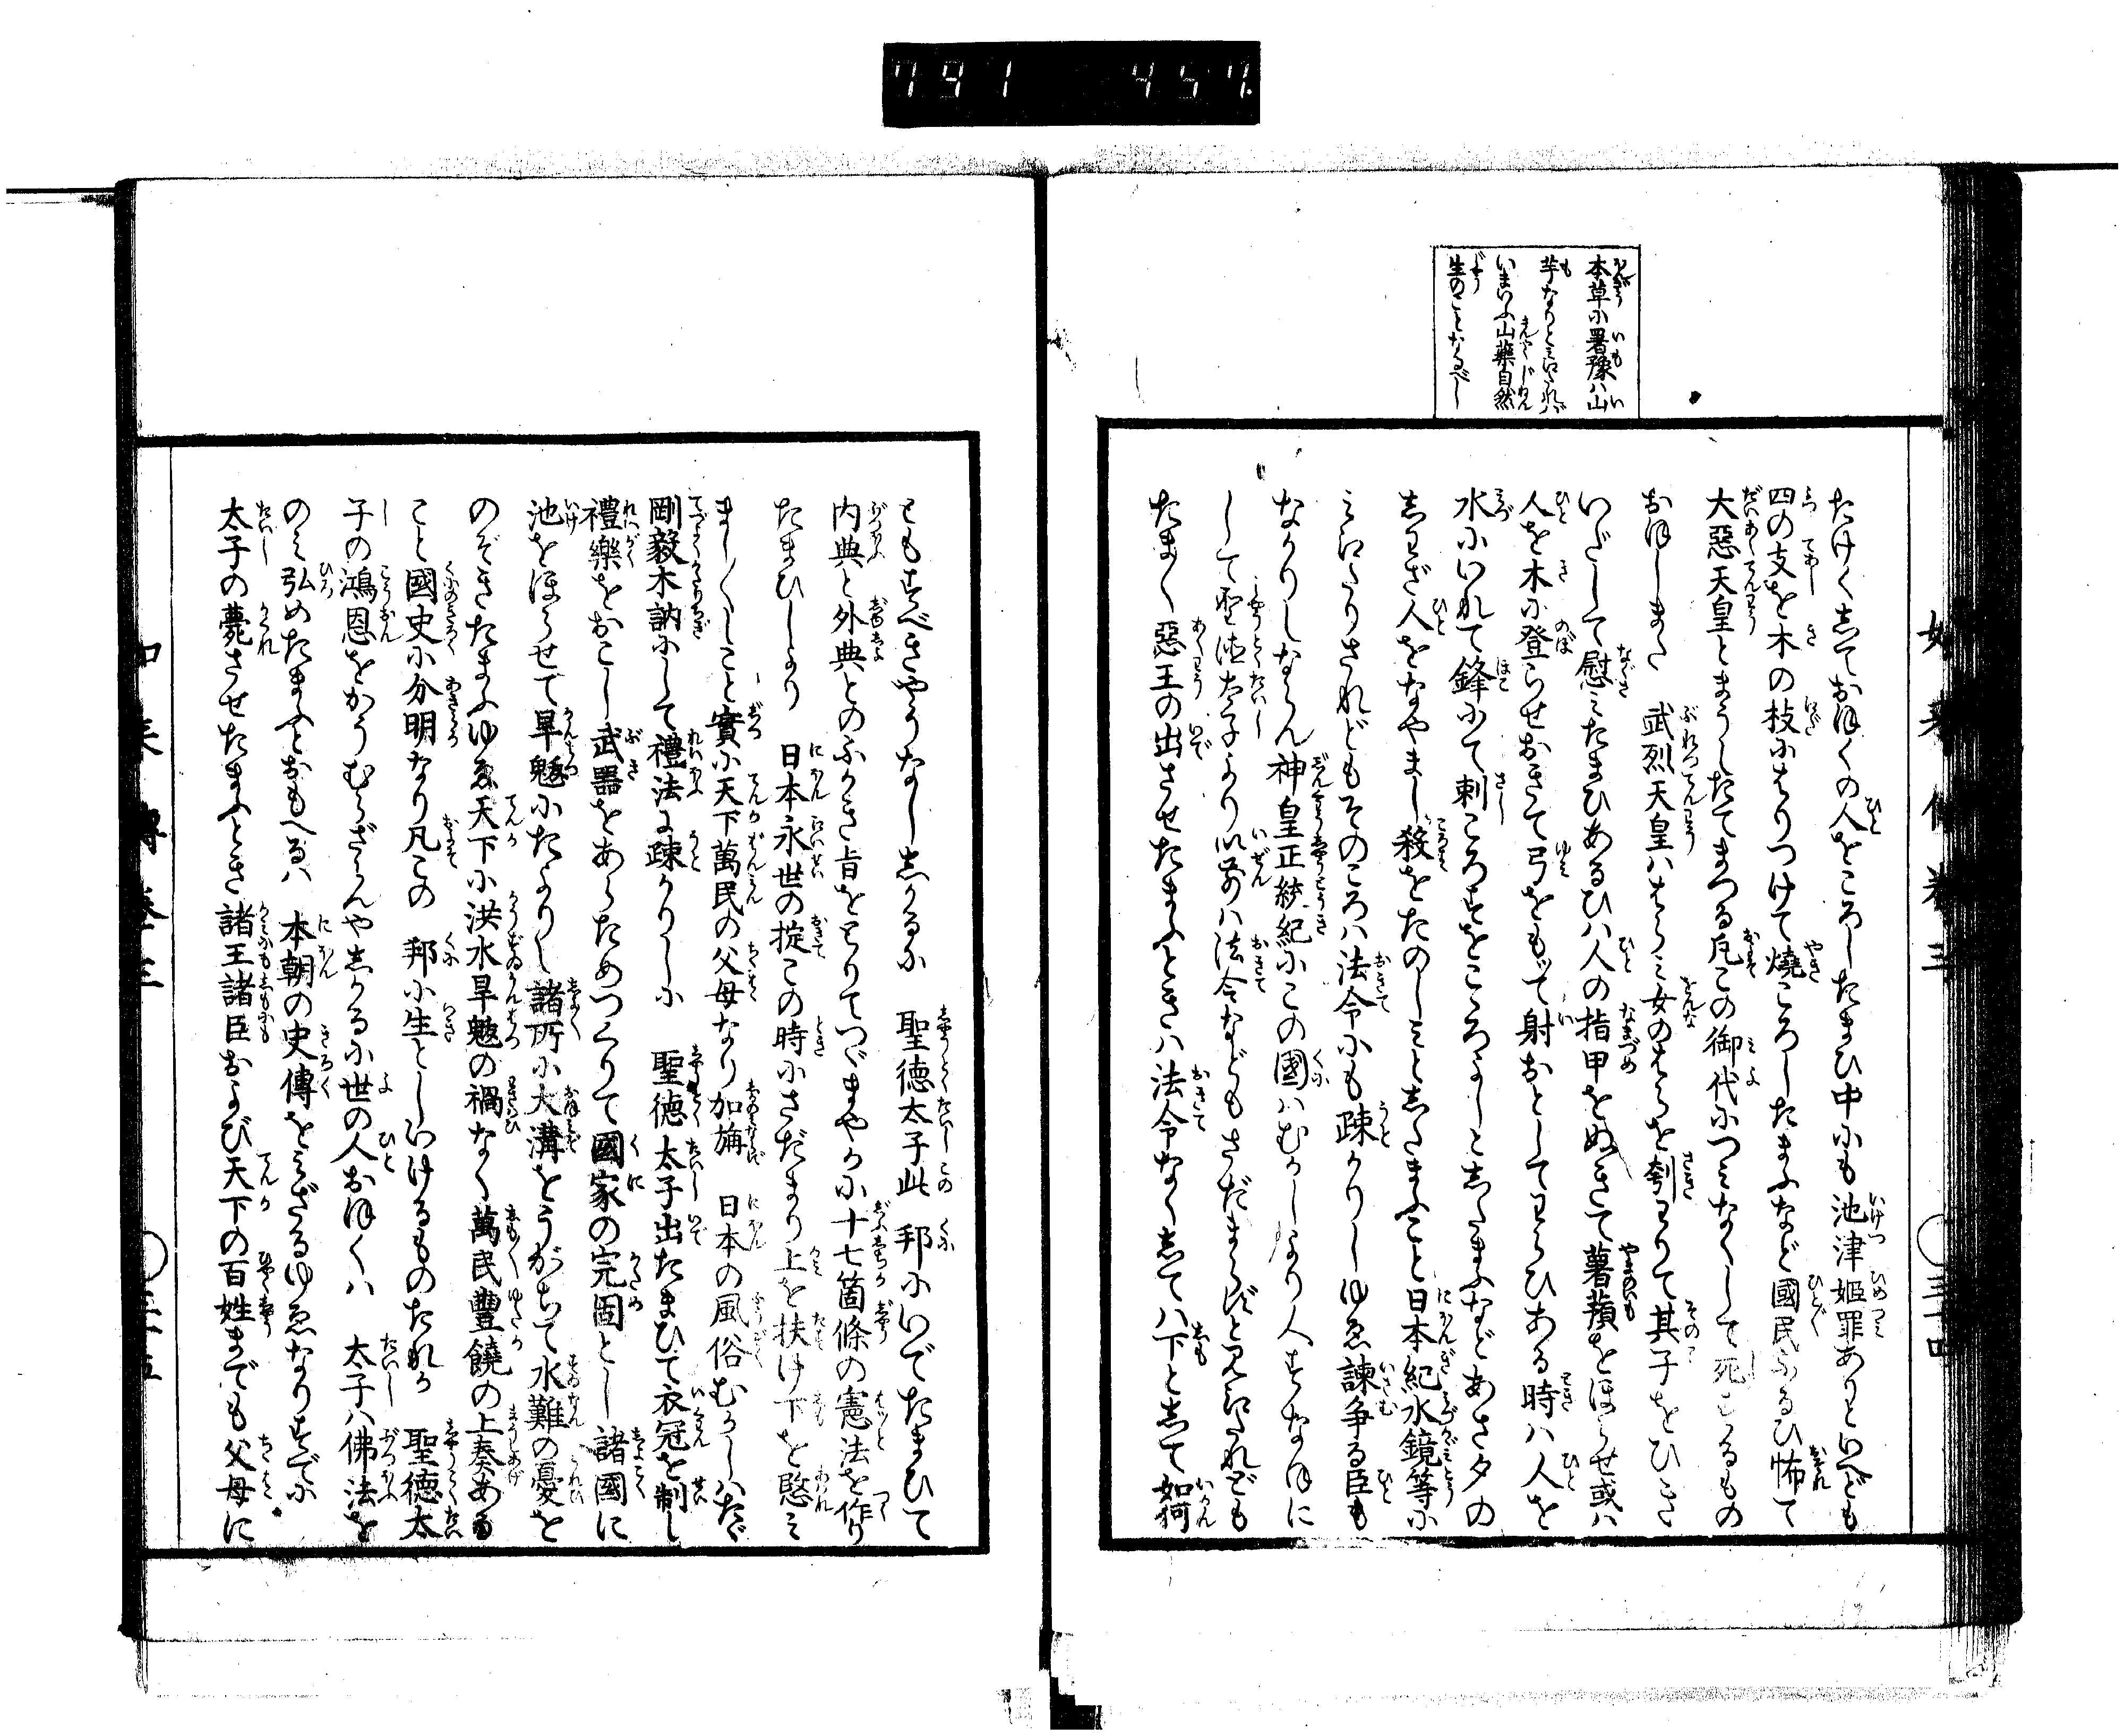 791 457.
本草に署豫ハ山
芋なりとミえたれバ
いまいふ山藥自然
生のことなるべし
たけく志ておほくの人をころしたまひ中にも池津姫罪ありといへども
四の支を木の枝にはりつけて燒ころしたまふなど國民ふるひ怖て
大惡天皇とまうしたてまつる凡この御代につミなくして死せるもの
おほしまた　武烈天皇ハはらミ女のはらを刳わりて其子をひき
いだして慰ミたまひあるひハ人の指甲をぬきて薯蕷をほらせ或ハ
人を木に登らせおきて弓をもて射おとしてわらひある時ハ人を
水にいれて鋒にて刺ころすをこゝろよしと志たまふなどあさ夕の
志わざ人をなやまし殺をたのしミと志たまふこと日本紀水鏡等に
ミえたりされどもそのころハ法令にも疎かりしゆゑ諫争る臣も
なかりしならん神皇正統紀にこの國ハむかしより人すなほに
して聖徳太子より以前ハ法令などもさだまらずと見えたれども
たま〱惡王の出させたまふときハ法令なく志てハ下と志て如何
ともすべきやうなし志かるに　聖徳太子此　邦にいでたまひて
内典と外典とのふかき旨をとりてつゞまやかに十七箇條の憲法を作り
たまひしより　日本永世の掟この時にさだまり上を扶け下を愍ミ
まし〱しこと實に天下萬民の父母なり加旃　日本の風俗むかしハたゞ
剛毅木訥にして禮法に疎かりしに　聖徳太子出たまひて衣冠を制し
禮樂をおこし武器をあらためつくりて國家の完固とし　諸國に
池をほらせて旱魃にたよりし諸所に大溝をうがちて水難の憂を
のぞきたまふゆゑ天下に洪水旱魃の禍なく萬民豐饒の上奏ある
こと國史に分明なり凡この　邦に生としいけるものたれか　聖徳太
子の鴻恩をかうむらざらんや志かるに世の人おほくハ　太子ハ佛法を
のミ弘めたまふとおもへるハ　本朝の史傳をミざるゆゑなりすでに
太子の薨させたまふとき諸王諸臣および天下の百姓までも父母に